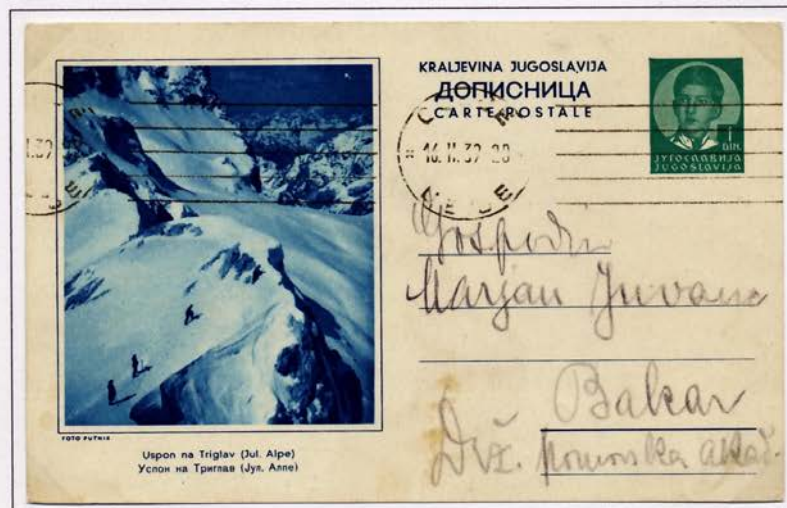 KRALJEVINA JUGOSLAVIJA
ДОПИСНИЦА
CARTE POSTALE
1
DIN.
ЈУГОСЛАВИЈА
JUGOSLAVIJA
16. II. 39
Gospodin
Marjan Juvanc
Bakar
Drž. pomorska akad.
FOTO PUTNIK
Uspon na Triglav (Jul. Alpe)
Успон на Триглав (Јул. Алпе)